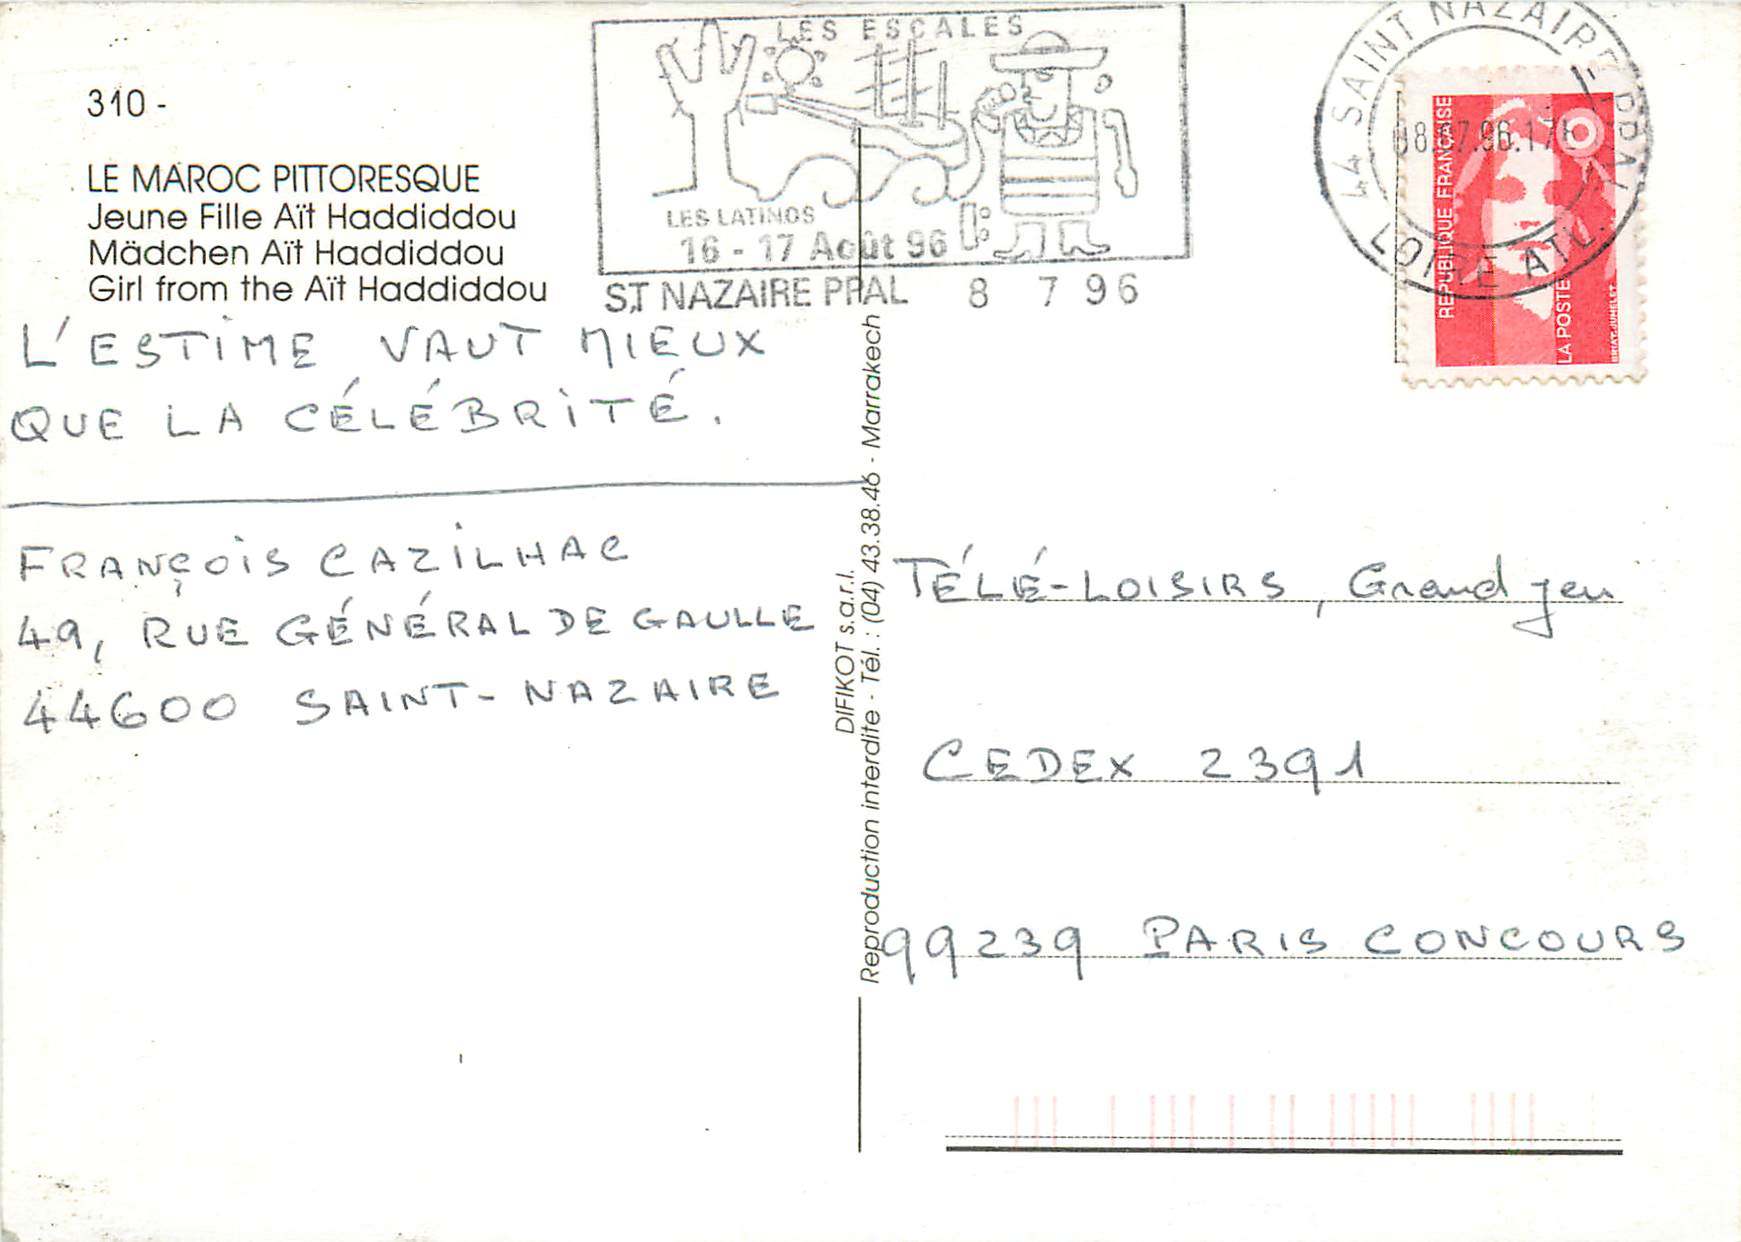 310 -
LE MAROC PITTORESQUE
Jeune Fille Aït Haddiddou
Mädchen Aït Haddiddou
Girl from the Aït Haddiddou
L'ESTIME VAUT MIEUX
QUE LA CÉLÉBRITÉ.
FRANÇOIS CAZILHAC
49, RUE GÉNÉRAL DE GAULLE
44600 SAINT-NAZAIRE
LES ESCALES
LES LATINOS
16 - 17 Août 96
ST NAZAIRE PPAL 8 7 96
DIFIKOT s.a.r.l.
Reproduction interdite - Tél. : (04) 43.38.46 - Marrakech
44 SAINT NAZAIRE PPAL
08.07.96.17H
LOIRE ATL.
REPUBLIQUE FRANÇAISE
LA POSTE
BRIAT-JUMELET
TÉLÉ-LOISIRS, Grand jeu
CEDEX 2391
99239 PARIS CONCOURS